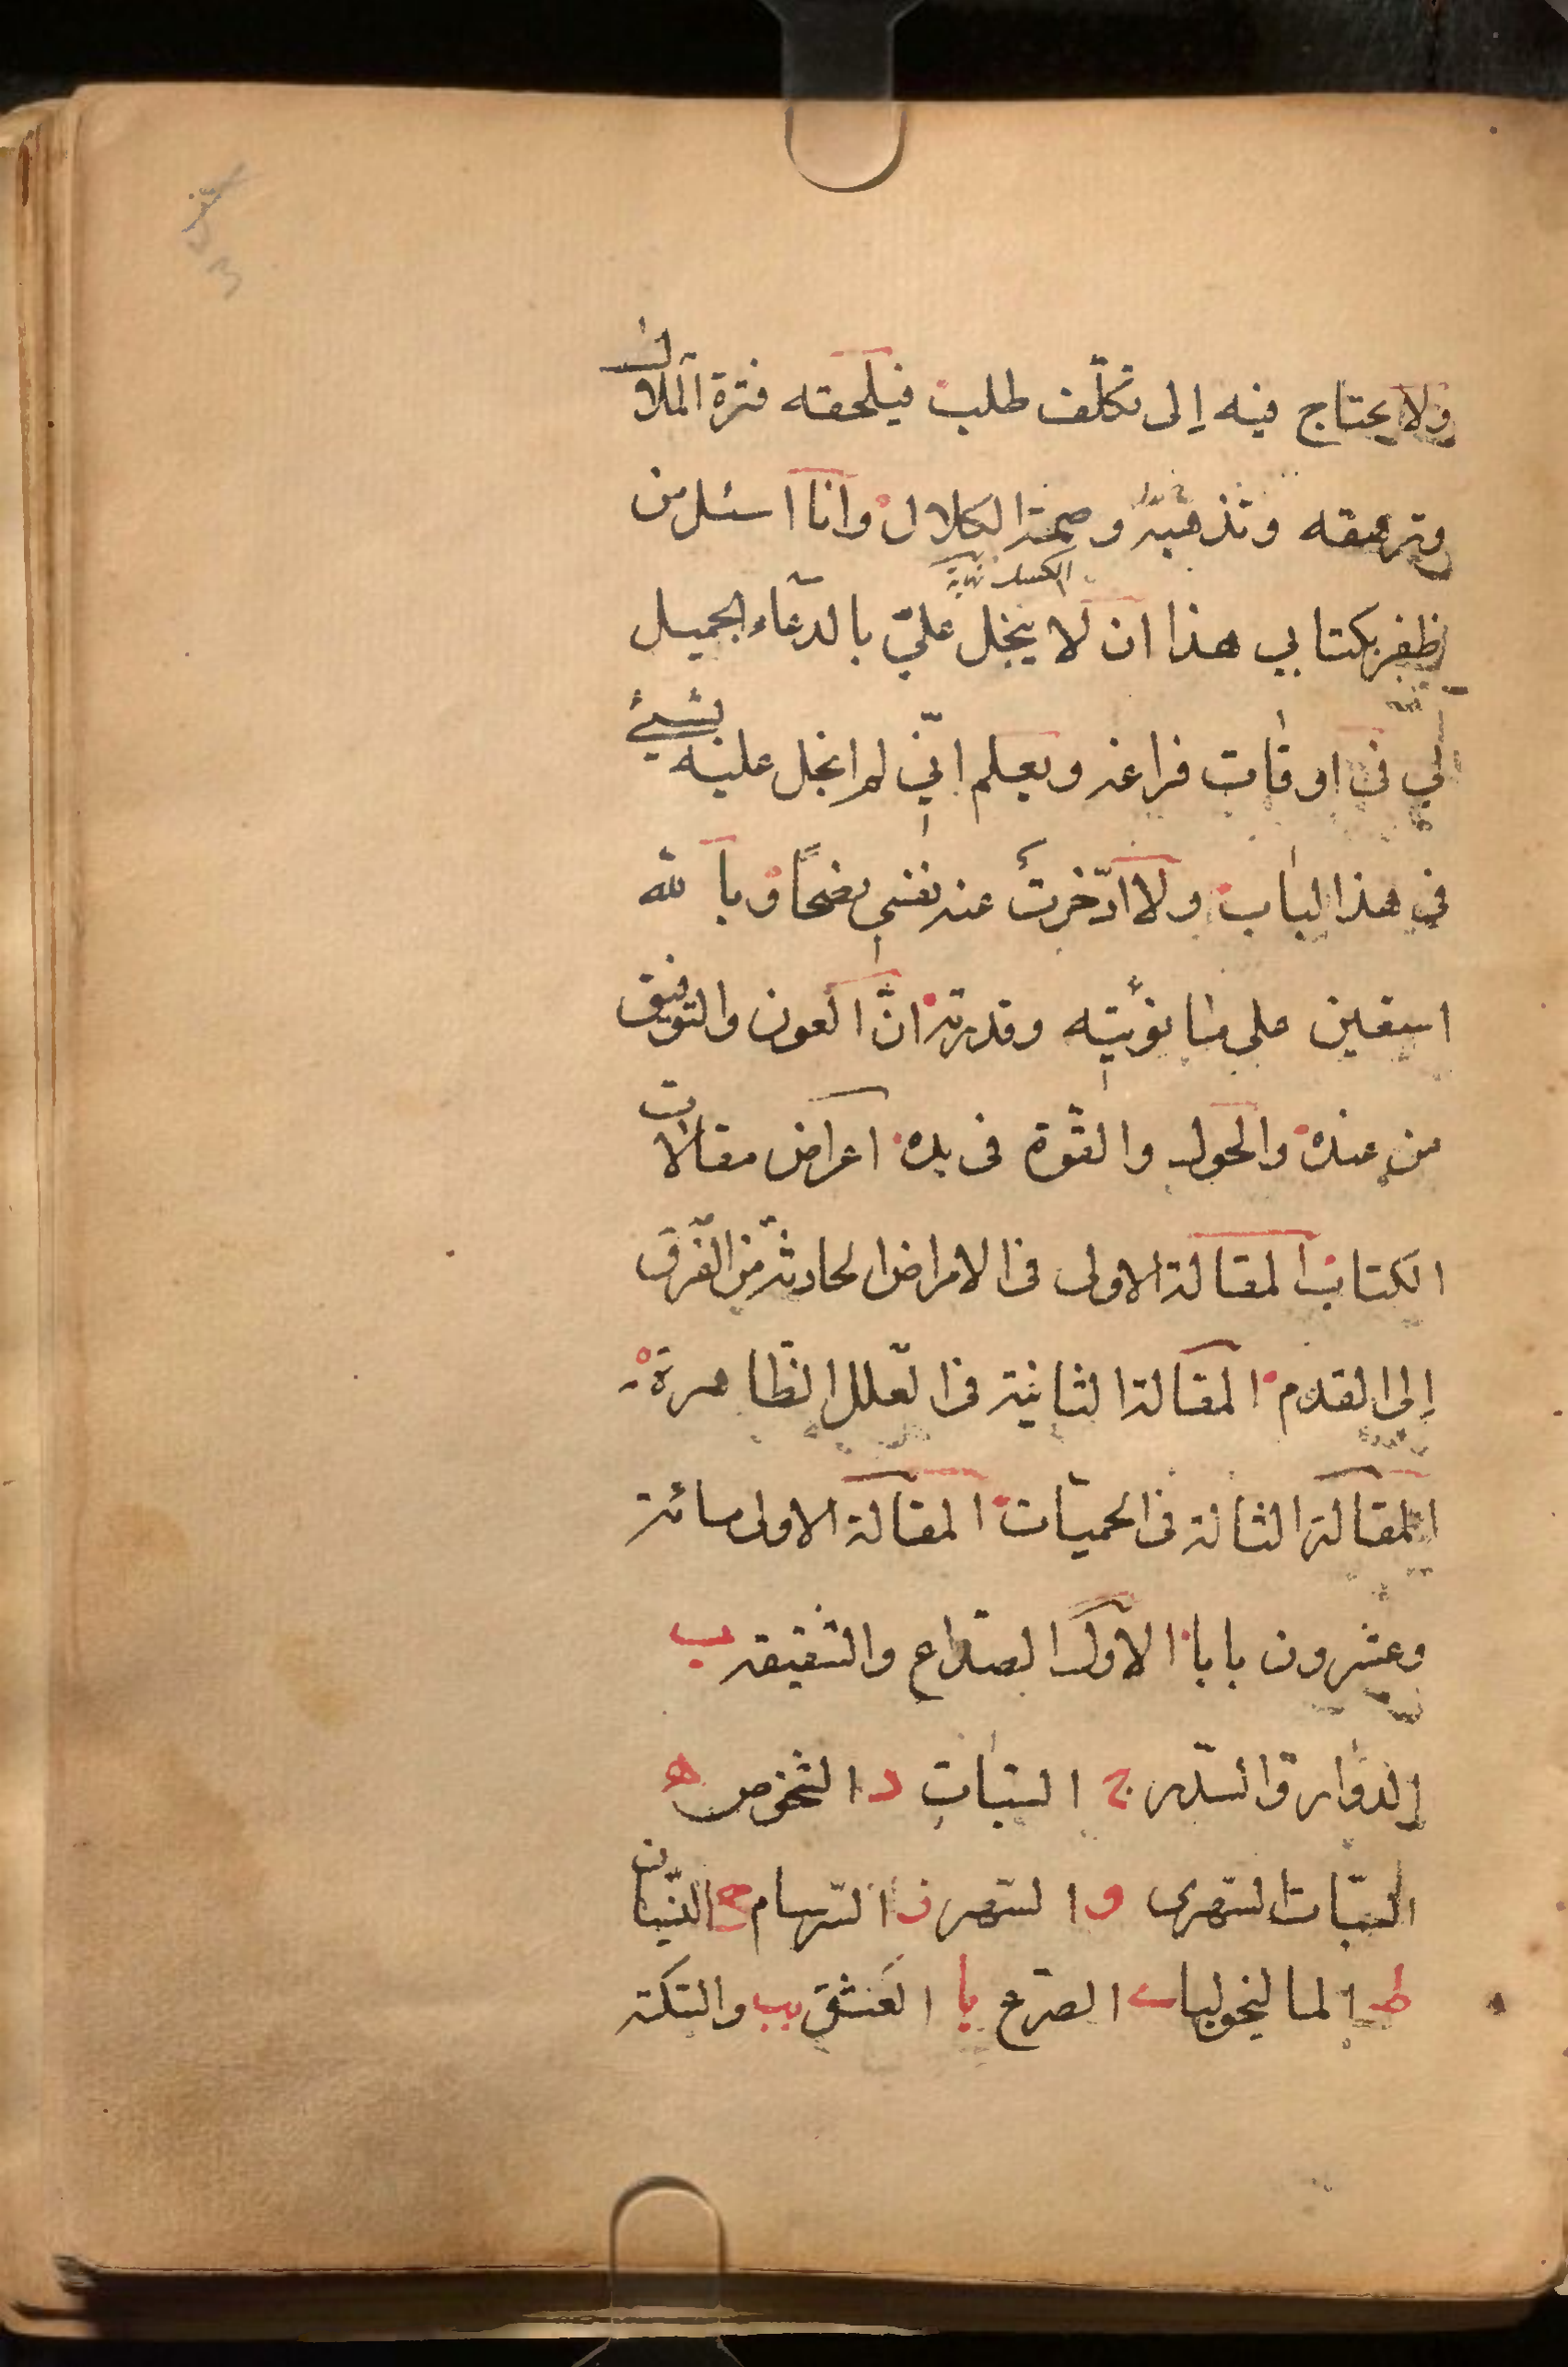 ولا يحتاج فيه إلى تكلّف طلب فيلحقه فترة الملال
وترهقه وتذهبه وصمة الكلال وانا اسئل من
الكسل
ظفر بكتابي هذا ان لا يبخل عليّ بالدّعاء الجميل
لي في اوقات فراغه ويعلم انّي لم ابخل عليه بشيئ
في هذا الباب ولا ادّخرت عنه نفسي نصحًا وبالله
استعين على ما نويته وقدرته انّ العون والتوفيق
من عنده والحول والقوّة في يده اغراض مقالات
الكتاب المقالة الاولى في الامراض الحادثة من الفرق
إلى القدم المقالة الثانية في العلل الظّاهرة
المقالة الثالثة في الحميّات المقالة الاولى مائة
وعشرون بابا الاوّل الصّداع والشقيقة ب
الدّوار والسّدر ج السّبات د الشّخوص ه
السّبات السّهرى و السّهر ز السّرسام ح النّسيان
ط المالنخوليا ى الصّرع يا العشق يب والسّكتة